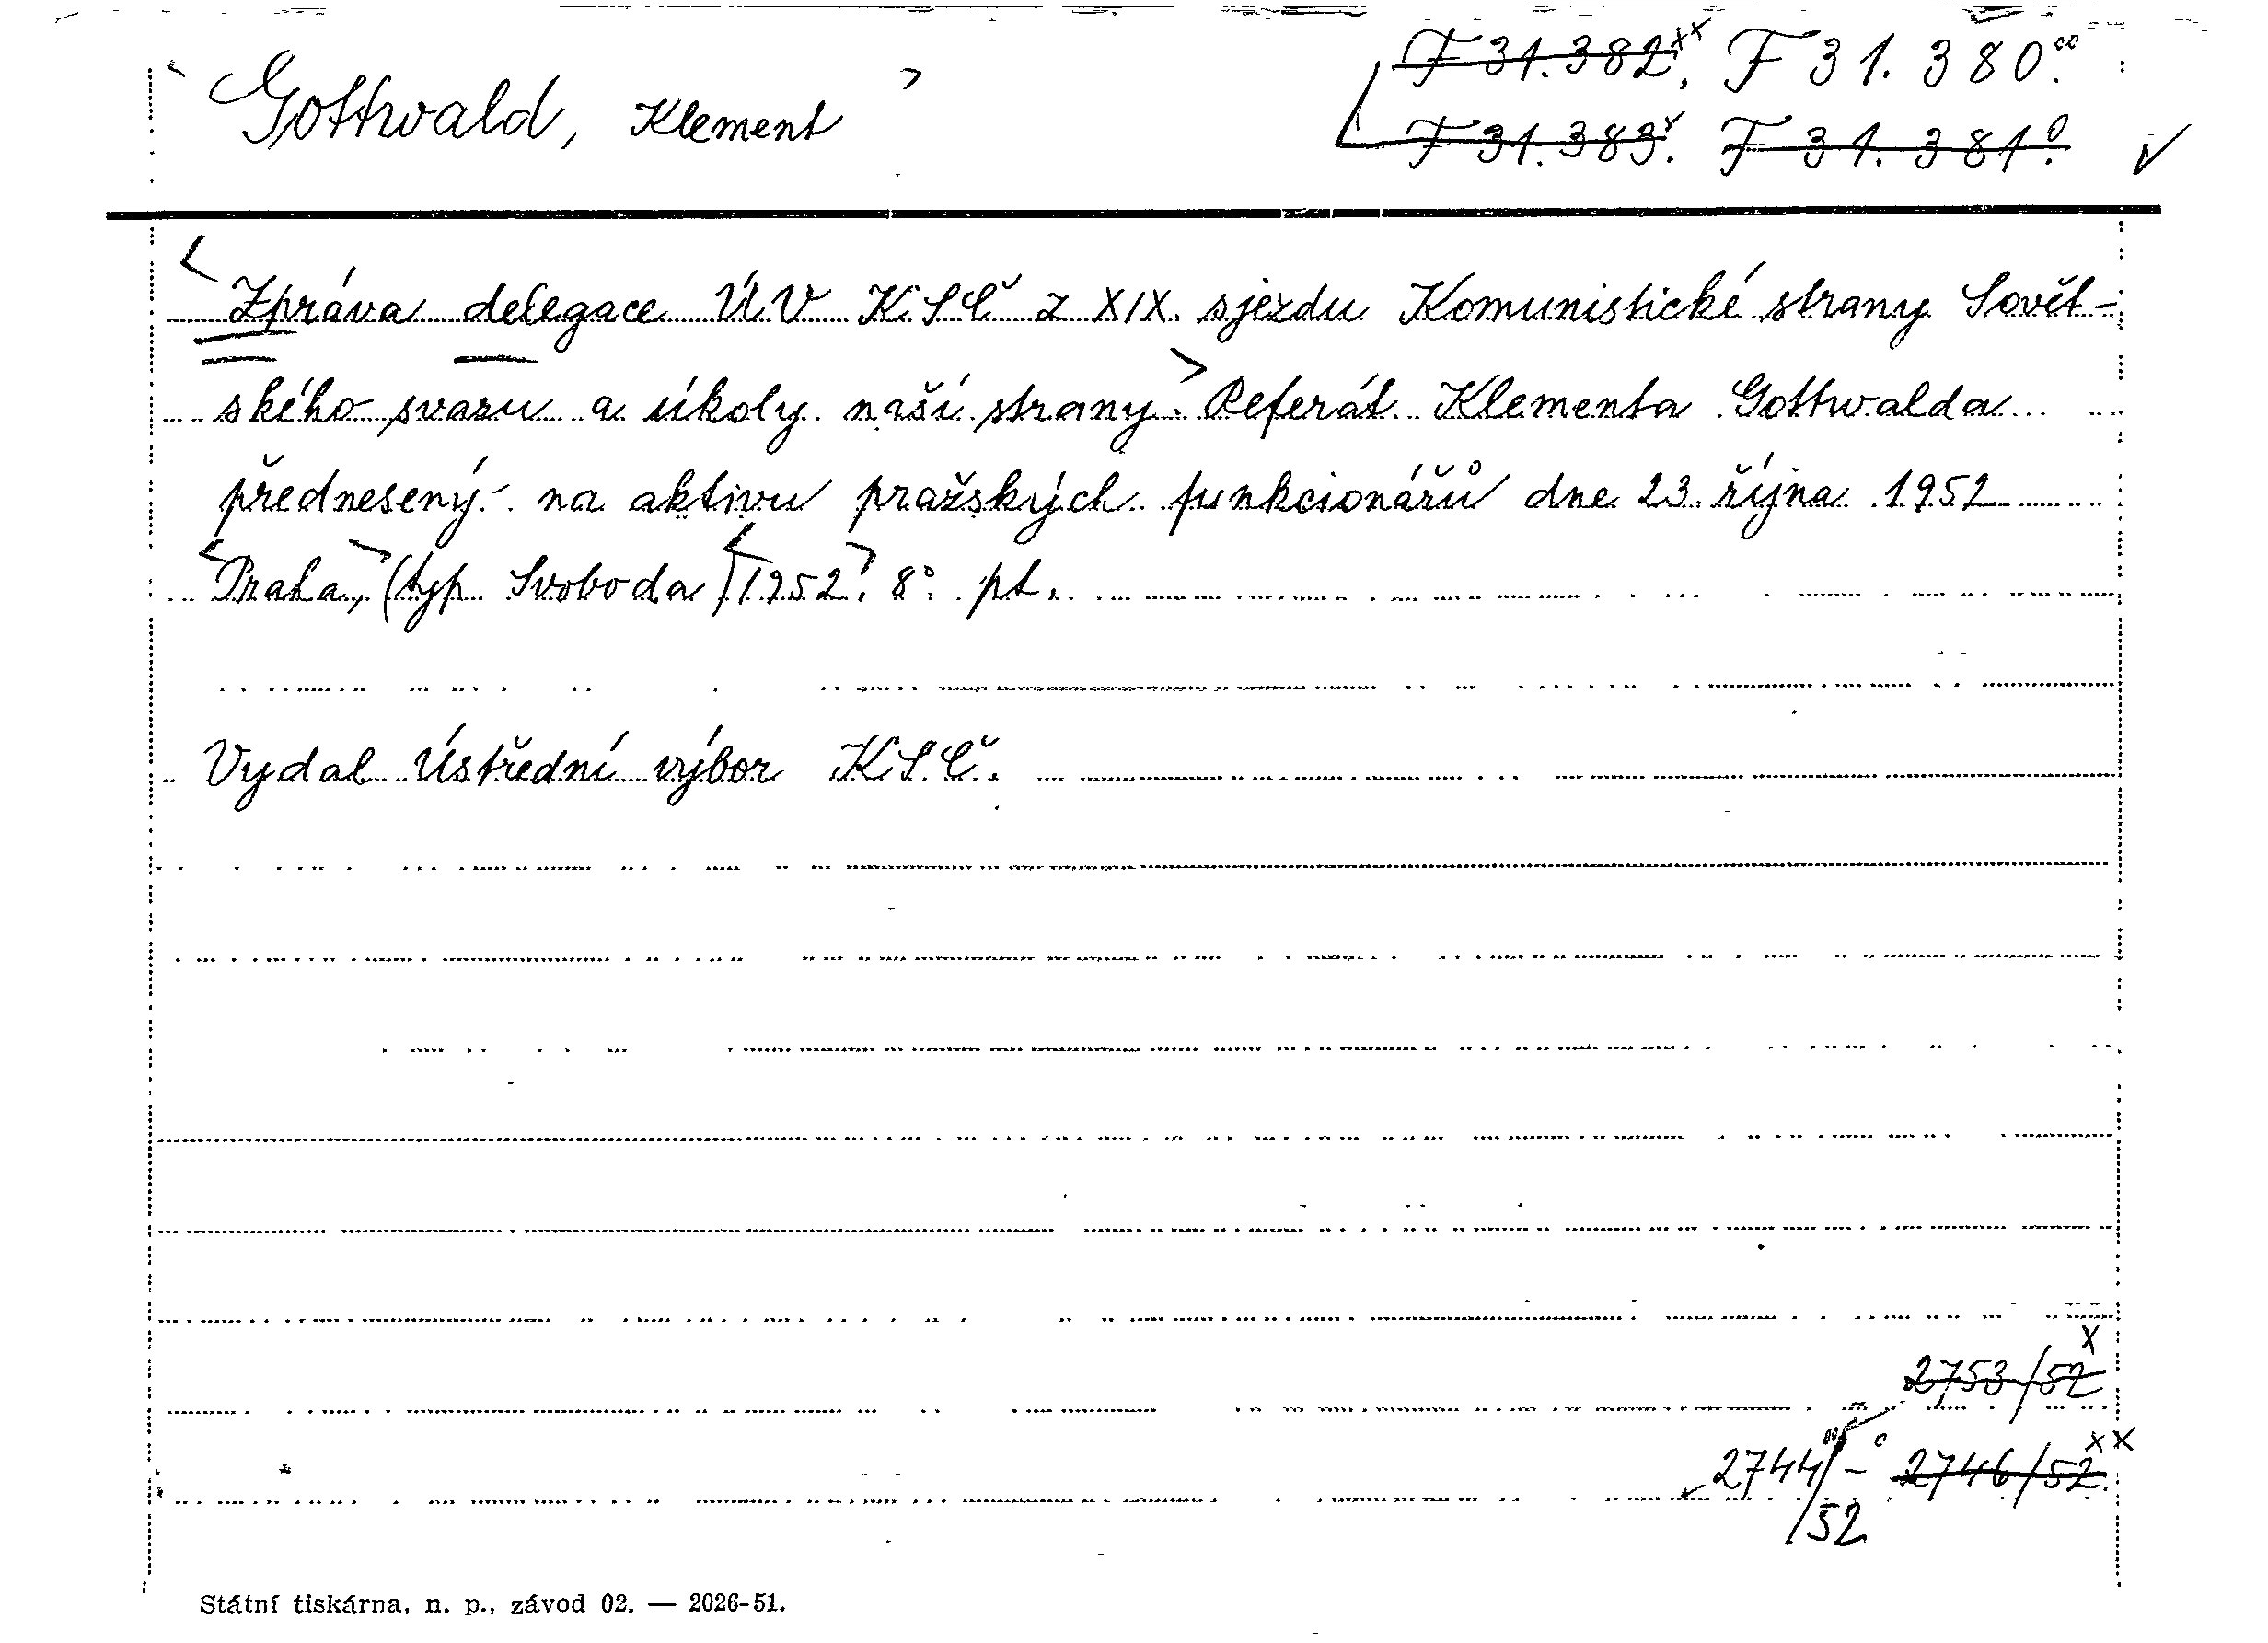 Gottwald, Klement
F 31.382xx, F 31.380°°.
F 31.383x. F 31.381°.
Zpráva delegace ÚV KSČ z XIX. sjezdu Komunistické strany Sovět-
ského svazu a úkoly naší strany. Referát Klementa Gottwalda
přednesený na aktivu pražských funkcionářů dne 23. října 1952
Praha, (typ. Svoboda) 1952. 8°. pt.
Vydal Ústřední výbor KSČ.
2753/52 x
2744/52 °° - ° 2746/52 xx
Státní tiskárna, n. p., závod 02. — 2026-51.